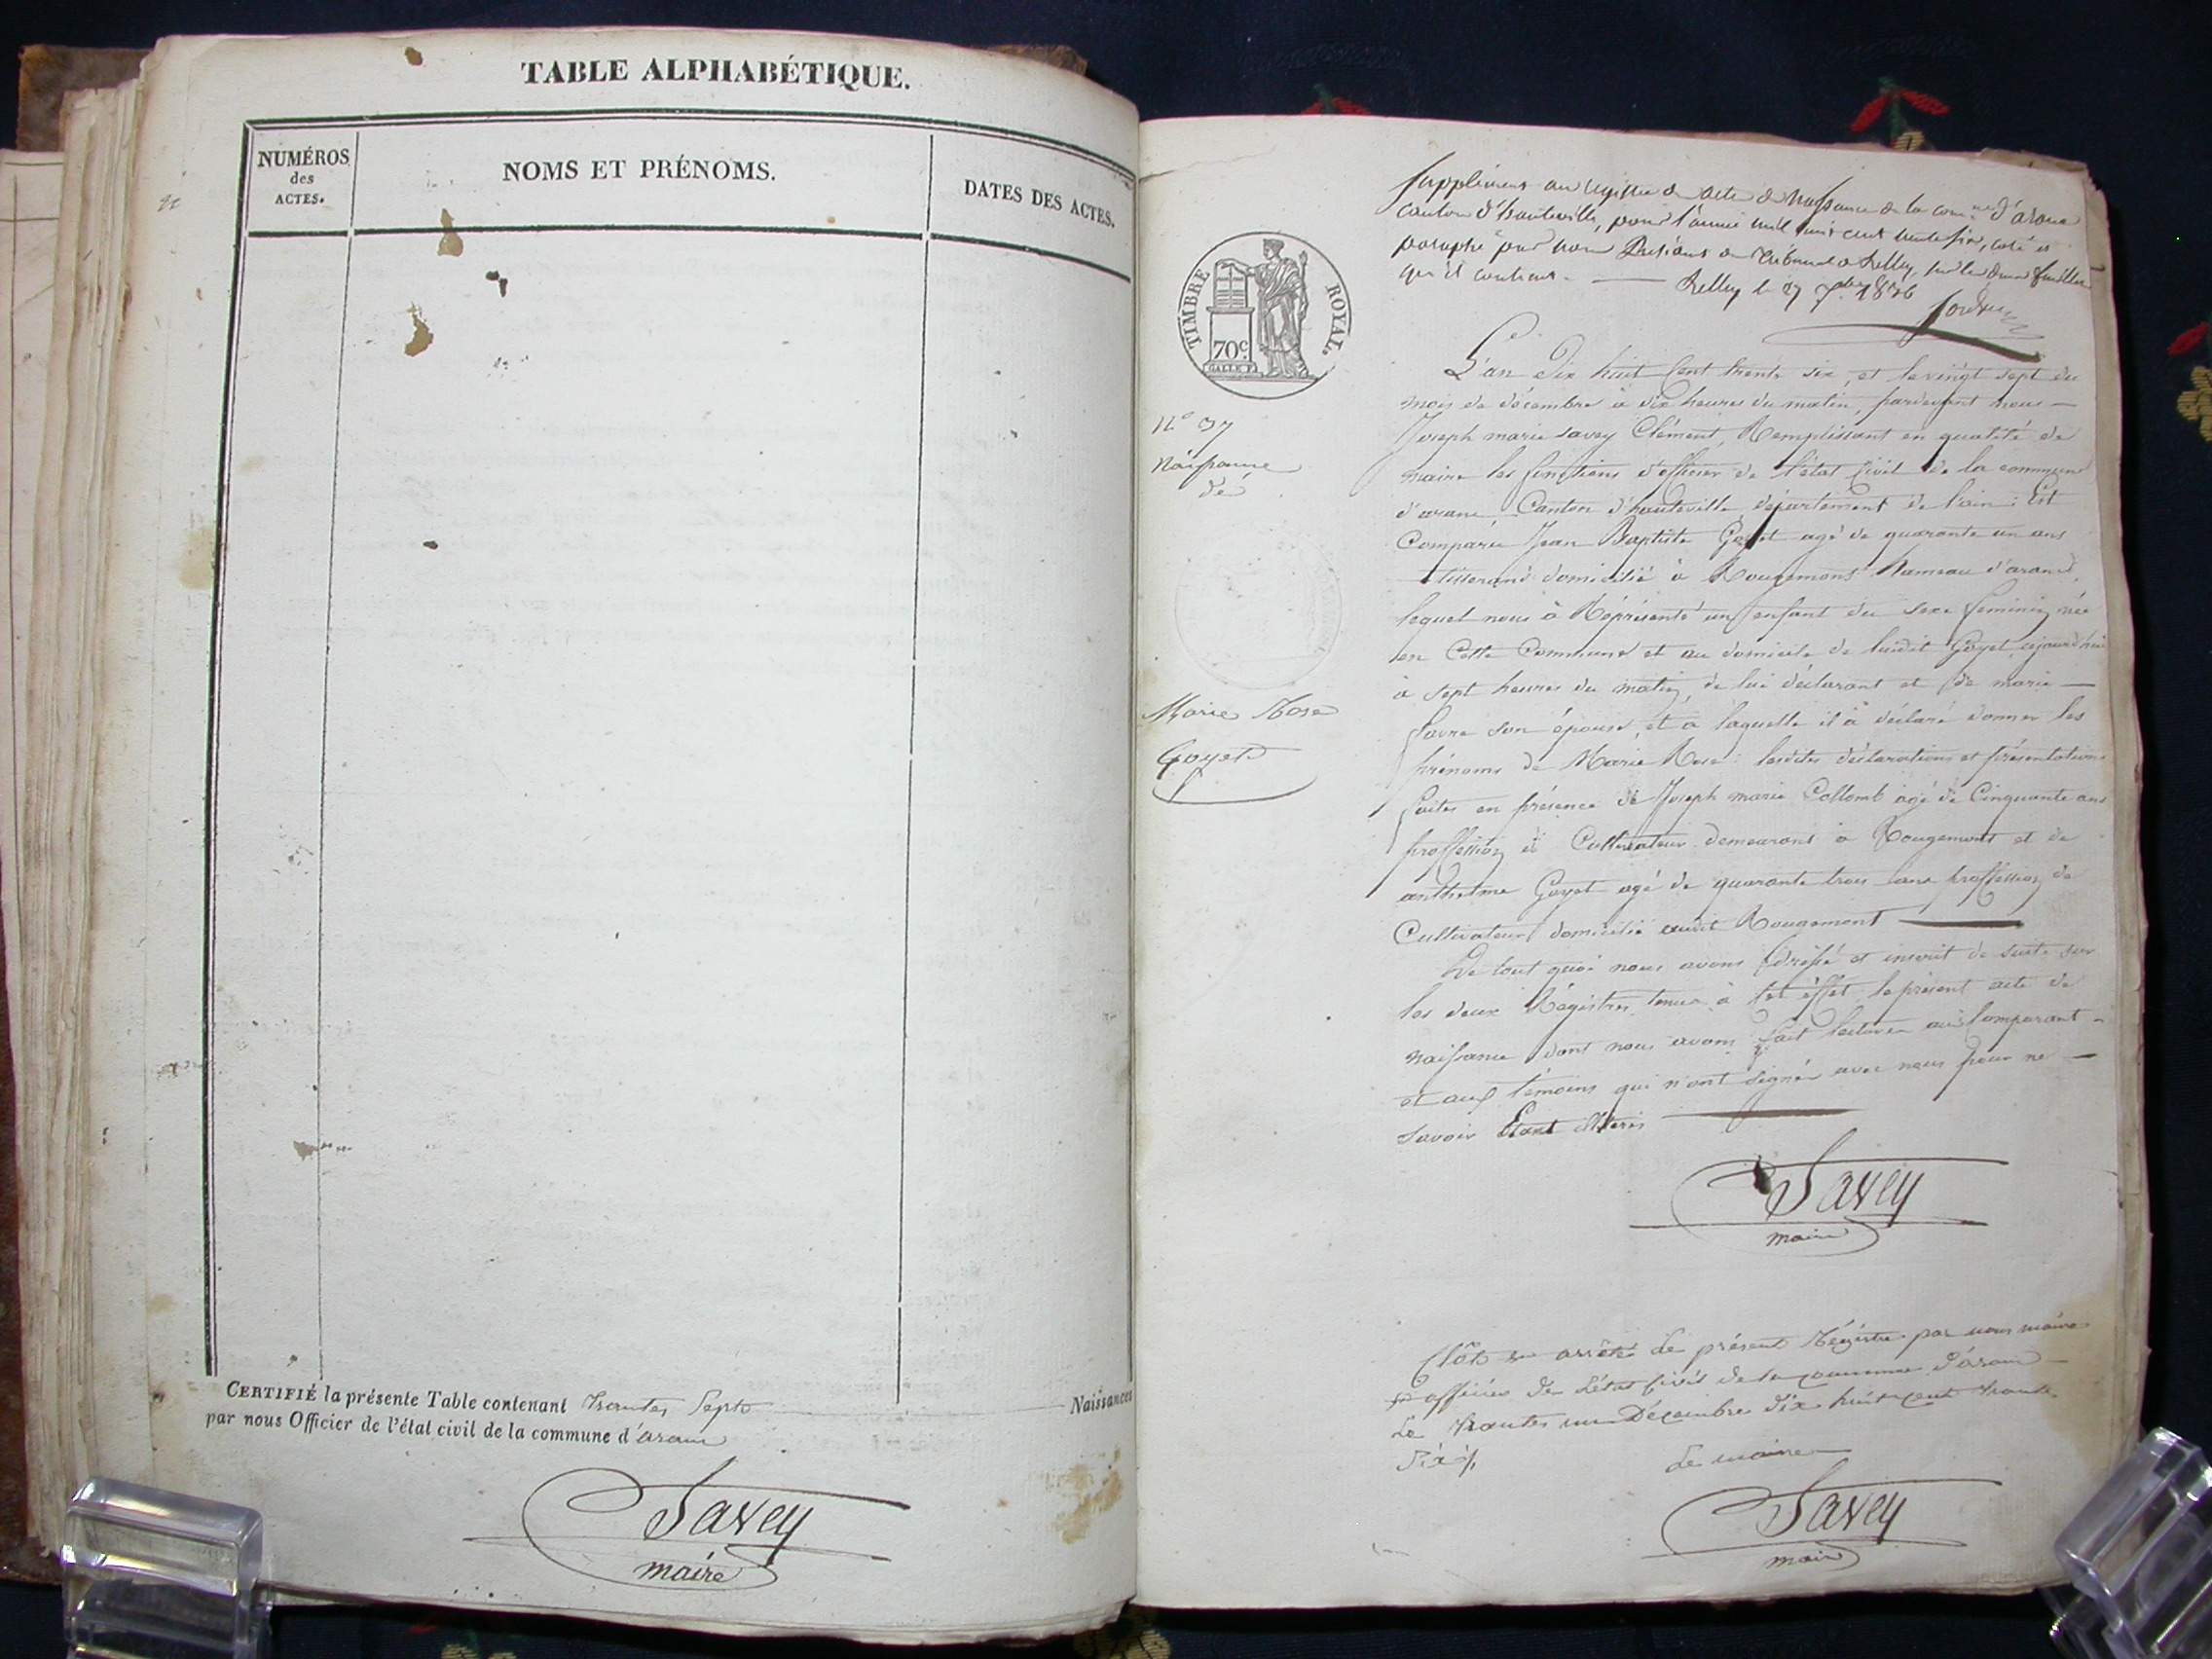 TABLE ALPHABÉTIQUE.
NUMÉROS
des
ACTES.
NOMS ET PRÉNOMS.
DATES DES ACTES.
CERTIFIÉ la présente Table contenant trentes Septs Naissances
par nous Officier de l'état civil de la commune d'aranc
Savey
maire
Supplément au registre de acte de Naissance de la comne d'aranc
canton d'hauteville, pour l'année mil huit cent trente six, coté et
paraphé par nous Président du Tribunal de Belley, sur les deux feuilles
qu'il contient.
Belley le 27 1836
TIMBRE ROYAL.
70c.
N° 37
Naissance
de
Marie Rose
Goyet
L'an Dix huit Cent trente six, et le vingt sept du
mois de décembre à dix heures du matin, pardevant nous
Joseph marie Savey Clément, Remplissant en qualité de
maire les fonctions d'officier de l'état Civil de la commune
d'aranc Canton d'hauteville département de l'ain : Est
Comparu Jean Baptiste Goyet agé de quarante un ans
tisserand domicilié à Rougemont hameau d'aranc,
lequel nous à Réprésenté un enfant du sexe feminin née
en Cette Commune et au domicile de ludit Goyet, ajourd'hui
à sept heures du matin, de lui déclarant et de marie
Favre son épouse, et a laquelle il à déclaré donner les
prénoms de Marie Rose : lesdites déclarations et présentations
faites en présence de Joseph marie Collomb agé de Cinquante ans
proffession de Cultivateur demeurant à Rougemont et de
anthelme Goyet agé de quarante trois ans proffession de
Cultivateur domicilié audit Rougemont
De tout quoi nous avons dréssé et inscrit de suite sur
les deux Régistres tenus à cet éffet le présent acte de
naissance dont nous avons fait lecture au Comparant
et aux témoins qui n'ont signés avec nous pour ne
savoir Etant
Savey
maire
Clôt et arrêté le présent Régistre par nous maire
et officier de l'état Civil de la commune d'aranc
Le trentes un Décembre dix huit cent trente
Six
Le maire
Savey
maire